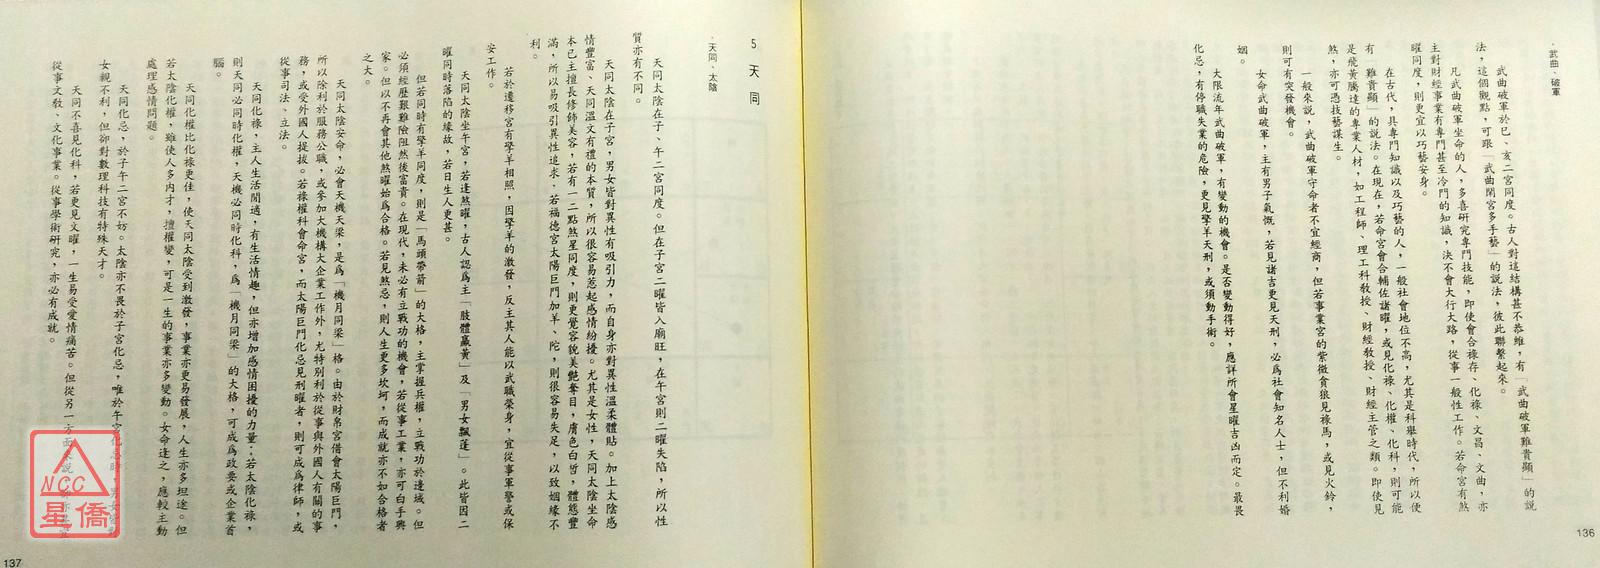 ·武曲、破軍
武曲破軍於巳、亥二宮同度。古人對這結構甚不恭維，有「武曲破軍難貴顯」的說
法，這個觀點，可跟「武曲閑宮多手藝」的說法，彼此聯繫起來。
凡武曲破軍坐命的人，多喜研究專門技能，即使會合祿存、化祿、文昌、文曲，亦
主對財經事業有專門甚至冷門的知識，決不會大行大路，從事一般性工作。若命宮有煞
曜同度，則更宜以巧藝安身。
在古代，具專門知識以及巧藝的人，一般社會地位不高，尤其是科舉時代，所以便
有「難貴顯」的說法。在現在，若命宮會合輔佐諸曜，或見化祿、化權、化科，則可能
是飛黃騰達的專業人材，如工程師、理工科教授、財經教授、財經主管之類。即使見
煞，亦可憑技藝謀生。
一般來說，武曲破軍守命者不宜經商，但若事業宮的紫微貪狼見祿馬，或見火鈴，
則可有突發機會。
女命武曲破軍，主有男子氣慨，若見諸吉更見天刑，必為社會知名人士，但不利婚
姻。
大限流年武曲破軍，有變動的機會。是否變動得好，應詳所會星曜吉凶而定。最畏
化忌，有停職失業的危險，更見擎羊天刑，或須動手術。
136
5 天同
·天同、太陰
天同太陰在子、午二宮同度。但在子宮二曜皆入廟旺，在午宮則二曜失陷，所以性
質亦有不同。
天同太陰在子宮，男女皆對異性有吸引力，而自身亦對異性溫柔體貼。加上太陰感
情豐富、天同溫文有禮的本質，所以很容易惹起感情紛擾。尤其是女性，天同太陰坐命
本已主擅長修飾美容，若有一二點煞星同度，則更覺容貌美艷奪目，膚色白晢，體態豐
滿，所以易吸引異性追求，若福德宮太陽巨門加羊、陀，則很容易失足，以致姻緣不
利。
若於遷移宮有擎羊相照，因擎羊的激發，反主其人能以武職榮身，宜從事軍警或保
安工作。
天同太陰坐午宮，若逢煞曜，古人認為主「肢體羸黃」及「男女飄蓬」。此皆因二
曜同時落陷的緣故，若日生人更甚。
但若同時有擎羊同度，則是「馬頭帶箭」的大格，主掌握兵權，立戰功於邊域。但
必須經歷艱難險阻然後富貴。在現代，未必有立戰功的機會，若從事工業，亦可白手興
家。但以不再會其他煞曜始為合格。若見煞忌，則人生更多坎坷，而成就亦不如合格者
之大。
天同太陰安命，必會天機天梁，是為「機月同梁」格。由於財帛宮借會太陽巨門，
所以除利於服務公職，或參加大機構大企業工作外，尤特別利於從事與外國人有關的事
務，或受外國人提拔。若祿權科會命宮，而太陽巨門化忌見刑曜者，則可成為律師，或
從事司法、立法。
天同化祿，主人生活閒適，有生活情趣，但亦增加感情困擾的力量；若太陰化祿，
則天同必同時化權，天機必同時化科，為「機月同梁」的大格，可成為政要或企業首
腦。
天同化權比化祿更佳，使天同太陰受到激發，事業亦更易發展，人生亦多坦途。但
若太陰化權，雖使人多內才，擅權變，可是一生的事業亦多變動。女命逢之，應較主動
處理感情問題。
天同化忌，於子午二宮不妨。太陰亦不畏於子宮化忌，唯於午宮化忌時，
女親不利，但卻對數理科技有特殊天才。
天同不喜見化科，若更見文曜，一生易受愛情痛苦。但從另一方面來說，
從事文教、文化事業。從事學術研究，亦必有成就。
137
NCC
星僑